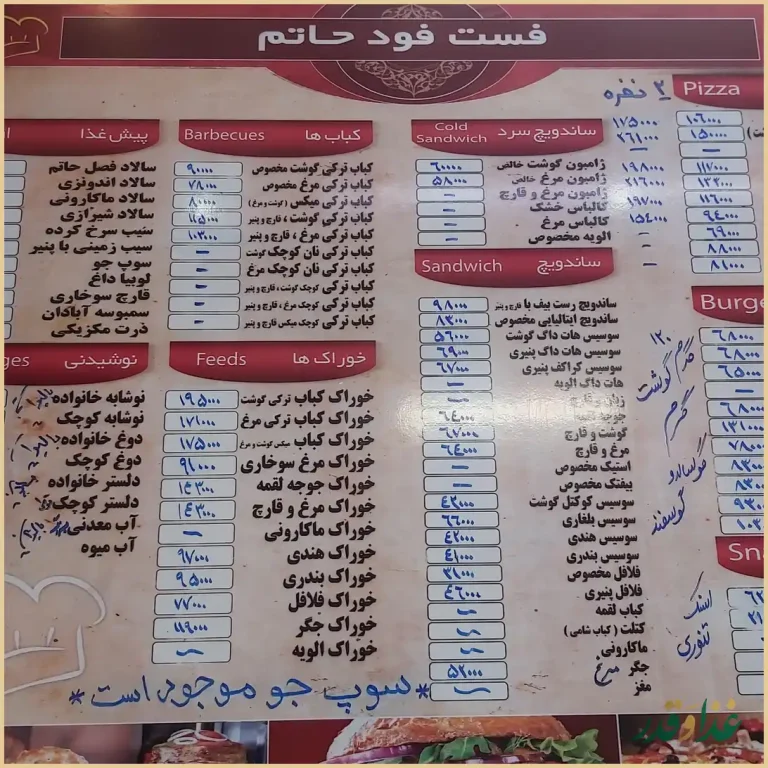 فست فود حاتم
Pizza
۲ نفره
۱۰۶۰۰۰
۱۷۵۰۰۰
۱۵۰۰۰۰
۲۶۱۰۰۰
–
۱۱۷۰۰۰
۱۹۸۰۰۰
۱۳۳۰۰۰
۲۱۶۰۰۰
۱۱۶۰۰۰
۱۹۷۰۰۰
۹۴۰۰۰
۱۵۴۰۰۰
۶۹۰۰۰
–
۸۸۰۰۰
۸۱۰۰۰
–
Burge
۶۸۰۰۰
۶۸۰۰۰
۶۵۰۰۰
–
۶۸۰۰۰
۱۳۱۰۰۰
۷۸۰۰۰
۸۳۰۰۰
۸۳۰۰۰
۹۳۰۰۰
۱۰۳۰۰۰
۱۲۰ گرم گوشت
گرم
گوساله و
گوسفند
Sn
اسنک
تنوری
ساندویچ سرد Cold Sandwich
ژامبون گوشت خالص ۶۰۰۰۰
ژامبون مرغ خالص ۵۸۰۰۰
ژامبون مرغ و قارچ –
کالباس خشک –
کالباس مرغ –
الویه مخصوص –
ساندویچ Sandwich
ساندویچ رست بیف با قارچ و پنیر ۹۸۰۰۰
ساندویچ ایتالیایی مخصوص ۸۳۰۰۰
سوسیس هات داگ گوشت ۵۶۰۰۰
سوسیس هات داگ پنیری ۶۹۰۰۰
سوسیس کراکف پنیری ۶۷۰۰۰
هات داگ الویه –
زبان و قارچ –
جوجه لقمه ۶۴۰۰۰
گوشت و قارچ ۶۷۰۰۰
مرغ و قارچ ۶۴۰۰۰
استیک مخصوص –
بیفتک مخصوص –
سوسیس کوکتل گوشت ۴۲۰۰۰
سوسیس بلغاری ۶۶۰۰۰
سوسیس هندی ۴۲۰۰۰
سوسیس بندری ۴۱۰۰۰
فلافل مخصوص ۳۱۰۰۰
فلافل پنیری ۴۶۰۰۰
کباب لقمه –
کتلت (کباب شامی) –
ماکارونی –
جگر مرغ ۵۲۰۰۰
مغز –
کباب ها Barbecues
کباب ترکی گوشت مخصوص ۹۰۰۰۰
کباب ترکی مرغ مخصوص ۷۸۰۰۰
کباب ترکی میکس (گوشت و مرغ) ۸۰۰۰۰
کباب ترکی گوشت ، قارچ و پنیر ۱۱۵۰۰۰
کباب ترکی مرغ ، قارچ و پنیر ۱۰۳۰۰۰
کباب ترکی نان کوچک گوشت –
کباب ترکی نان کوچک مرغ –
کباب ترکی کوچک گوشت ، قارچ و پنیر –
کباب ترکی کوچک مرغ ، قارچ و پنیر –
کباب ترکی کوچک میکس قارچ و پنیر –
خوراک ها Feeds
خوراک کباب ترکی گوشت ۱۹۵۰۰۰
خوراک کباب ترکی مرغ ۱۷۱۰۰۰
خوراک کباب میکس گوشت و مرغ ۱۷۵۰۰۰
خوراک مرغ سوخاری ۹۱۰۰۰
خوراک جوجه لقمه ۱۴۳۰۰۰
خوراک مرغ و قارچ ۱۴۳۰۰۰
خوراک ماکارونی –
خوراک هندی ۹۷۰۰۰
خوراک بندری ۹۵۰۰۰
خوراک فلافل ۷۷۰۰۰
خوراک جگر ۱۱۹۰۰۰
خوراک الویه –
پیش غذا
سالاد فصل حاتم
سالاد اندونزی
سالاد ماکارونی
سالاد شیرازی
سیب سرخ کرده
سیب زمینی با پنیر
سوپ جو
لوبیا داغ
قارچ سوخاری
سمبوسه آبادان
ذرت مکزیکی
نوشیدنی ges
نوشابه خانواده
نوشابه کوچک
دوغ خانواده
دوغ کوچک
دلستر خانواده
دلستر کوچک
آب معدنی
آب میوه
*سوپ جو موجود است*
غذا و قدر